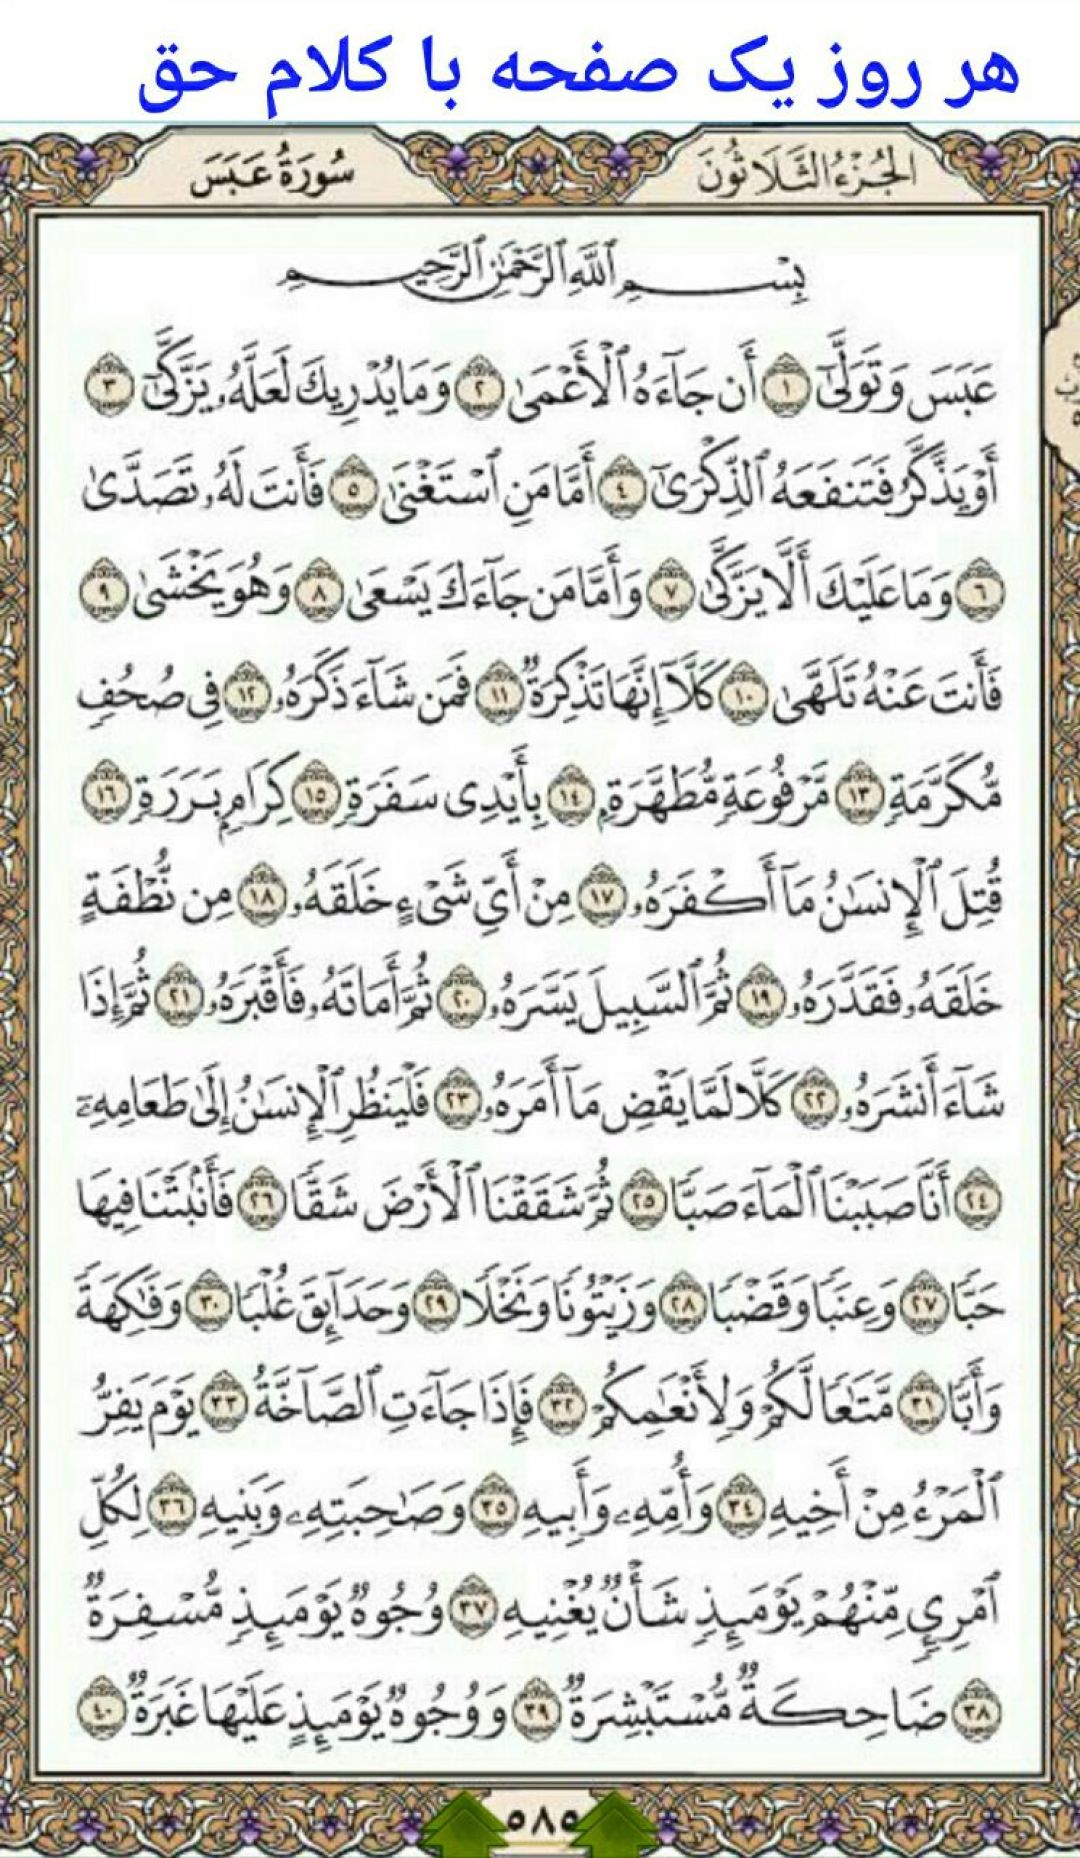 هر روز یک صفحه با کلام حق
الجُزْءُ الثَّلَاثُونَ
سُورَةُ عَبَسَ
بِسْمِ ٱللَّهِ ٱلرَّحْمَٰنِ ٱلرَّحِيمِ
عَبَسَ وَتَوَلَّىٰٓ ١ أَن جَآءَهُ ٱلْأَعْمَىٰ ٢ وَمَا يُدْرِيكَ لَعَلَّهُۥ يَزَّكَّىٰٓ ٣
أَوْ يَذَّكَّرُ فَتَنفَعَهُ ٱلذِّكْرَىٰٓ ٤ أَمَّا مَنِ ٱسْتَغْنَىٰ ٥ فَأَنتَ لَهُۥ تَصَدَّىٰ
٦ وَمَا عَلَيْكَ أَلَّا يَزَّكَّىٰ ٧ وَأَمَّا مَن جَآءَكَ يَسْعَىٰ ٨ وَهُوَ يَخْشَىٰ ٩
فَأَنتَ عَنْهُ تَلَهَّىٰ ١٠ كَلَّآ إِنَّهَا تَذْكِرَةٌ ١١ فَمَن شَآءَ ذَكَرَهُۥ ١٢ فِى صُحُفٍ
مُّكَرَّمَةٍ ١٣ مَّرْفُوعَةٍ مُّطَهَّرَةٍۭ ١٤ بِأَيْدِى سَفَرَةٍ ١٥ كِرَامٍۭ بَرَرَةٍ ١٦
قُتِلَ ٱلْإِنسَٰنُ مَآ أَكْفَرَهُۥ ١٧ مِنْ أَىِّ شَىْءٍ خَلَقَهُۥ ١٨ مِن نُّطْفَةٍ
خَلَقَهُۥ فَقَدَّرَهُۥ ١٩ ثُمَّ ٱلسَّبِيلَ يَسَّرَهُۥ ٢٠ ثُمَّ أَمَاتَهُۥ فَأَقْبَرَهُۥ ٢١ ثُمَّ إِذَا
شَآءَ أَنشَرَهُۥ ٢٢ كَلَّا لَمَّا يَقْضِ مَآ أَمَرَهُۥ ٢٣ فَلْيَنظُرِ ٱلْإِنسَٰنُ إِلَىٰ طَعَامِهِۦٓ
٢٤ أَنَّا صَبَبْنَا ٱلْمَآءَ صَبًّا ٢٥ ثُمَّ شَقَقْنَا ٱلْأَرْضَ شَقًّا ٢٦ فَأَنۢبَتْنَا فِيهَا
حَبًّا ٢٧ وَعِنَبًا وَقَضْبًا ٢٨ وَزَيْتُونًا وَنَخْلًا ٢٩ وَحَدَآئِقَ غُلْبًا ٣٠ وَفَٰكِهَةً
وَأَبًّا ٣١ مَّتَٰعًا لَّكُمْ وَلِأَنْعَٰمِكُمْ ٣٢ فَإِذَا جَآءَتِ ٱلصَّآخَّةُ ٣٣ يَوْمَ يَفِرُّ
ٱلْمَرْءُ مِنْ أَخِيهِ ٣٤ وَأُمِّهِۦ وَأَبِيهِ ٣٥ وَصَٰحِبَتِهِۦ وَبَنِيهِ ٣٦ لِكُلِّ
ٱمْرِئٍ مِّنْهُمْ يَوْمَئِذٍ شَأْنٌ يُغْنِيهِ ٣٧ وُجُوهٌ يَوْمَئِذٍ مُّسْفِرَةٌ
٣٨ ضَاحِكَةٌ مُّسْتَبْشِرَةٌ ٣٩ وَوُجُوهٌ يَوْمَئِذٍ عَلَيْهَا غَبَرَةٌ ٤٠
٥٨٥